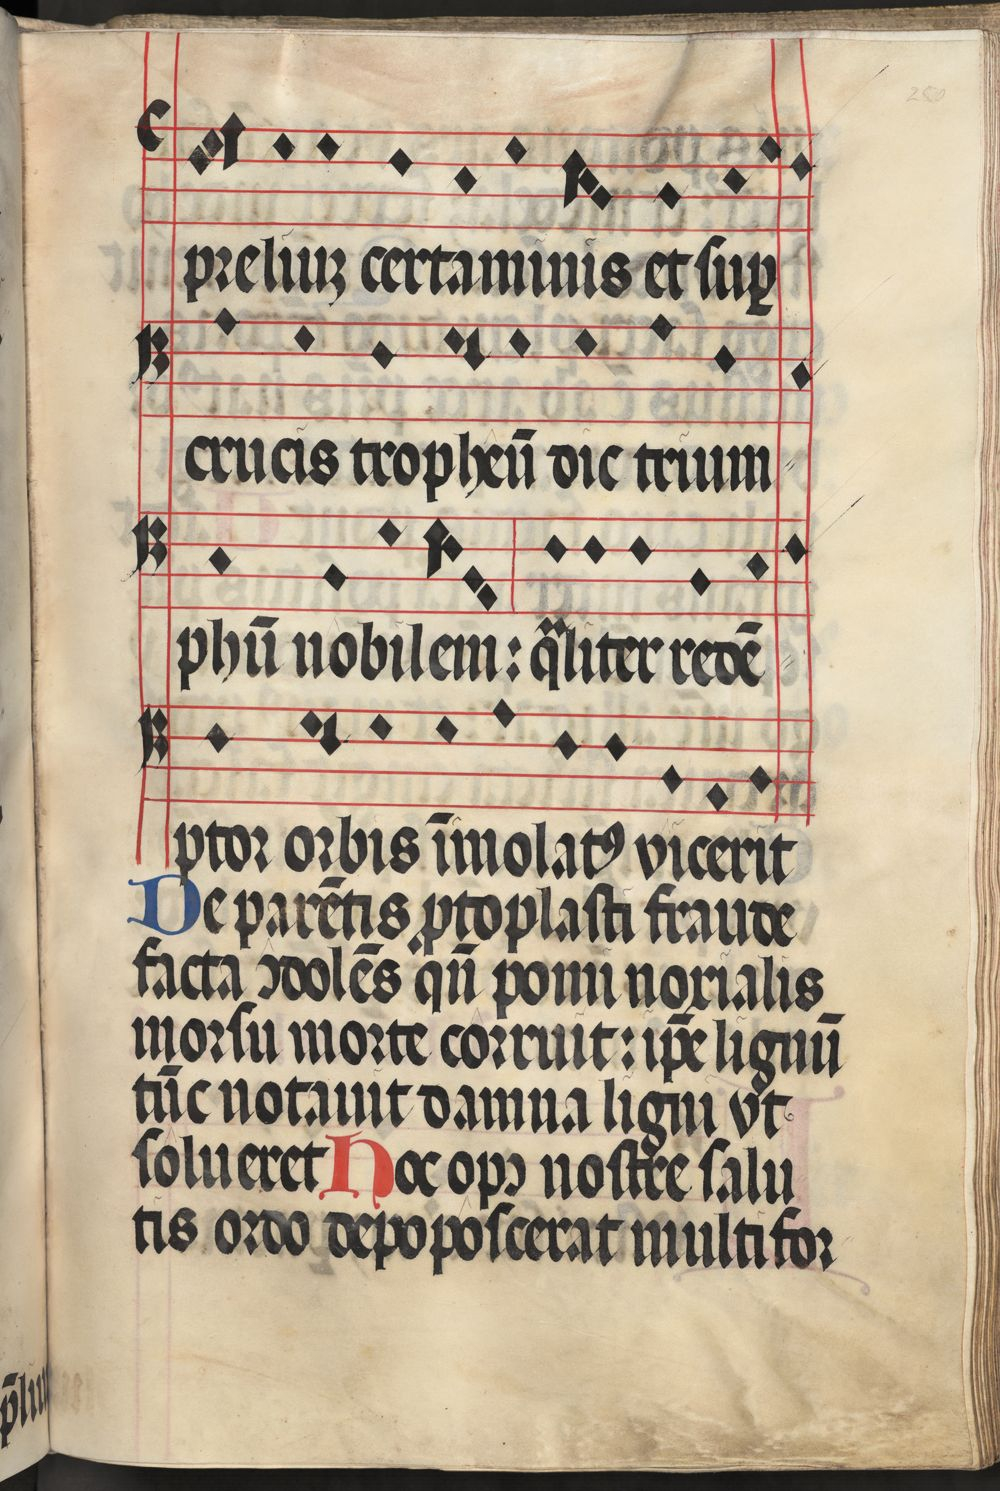 280
preliuʒ certaminis et suꝑ
crucis tropheū dic trium
phū nobilem: qͣliter redē
ptor orbis īmolatꝰ vicerit
De parētis ꝓtoplasti fraude
facta ↄdolēs qn̄ pomi noxialis
morsu morte corruit: ip̄e lignū
tūc notauit damna ligni vt
solueret Hoc opꝰ nostre salu
tis ordo depoposcerat multifor
p̄liu